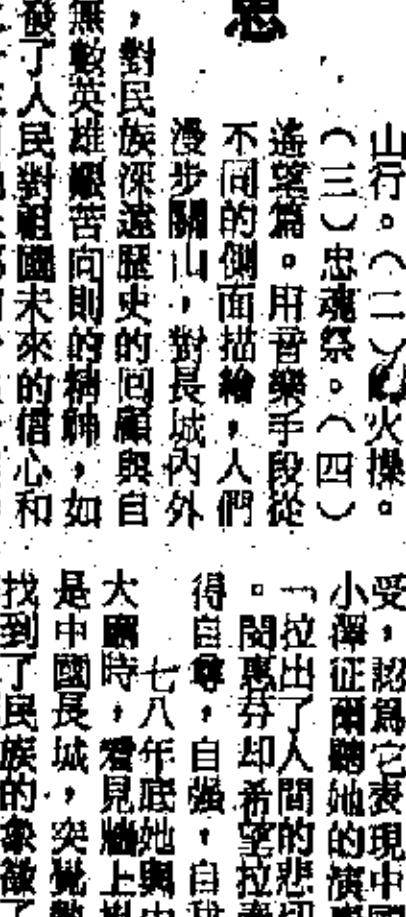 思
山行。(二)烽火操。
(三)忠魂祭。(四)
遙望篇。用音樂手段從
不同的側面描繪,人們
漫步關山,對長城內外
,對民族深遠歷史的回顧與自
無數英雄艱苦向前的精神,如
發了人民對祖國未來的信心和
受,認爲它表現中國
小澤征爾聽她的演奏
「拉出了人間的悲切
。閔惠芬却希望拉奏
得自尊,自强,自我
七八年底她與中
大廳時,看見牆上掛
是中國長城,突覺數
找到了民族的象徵了